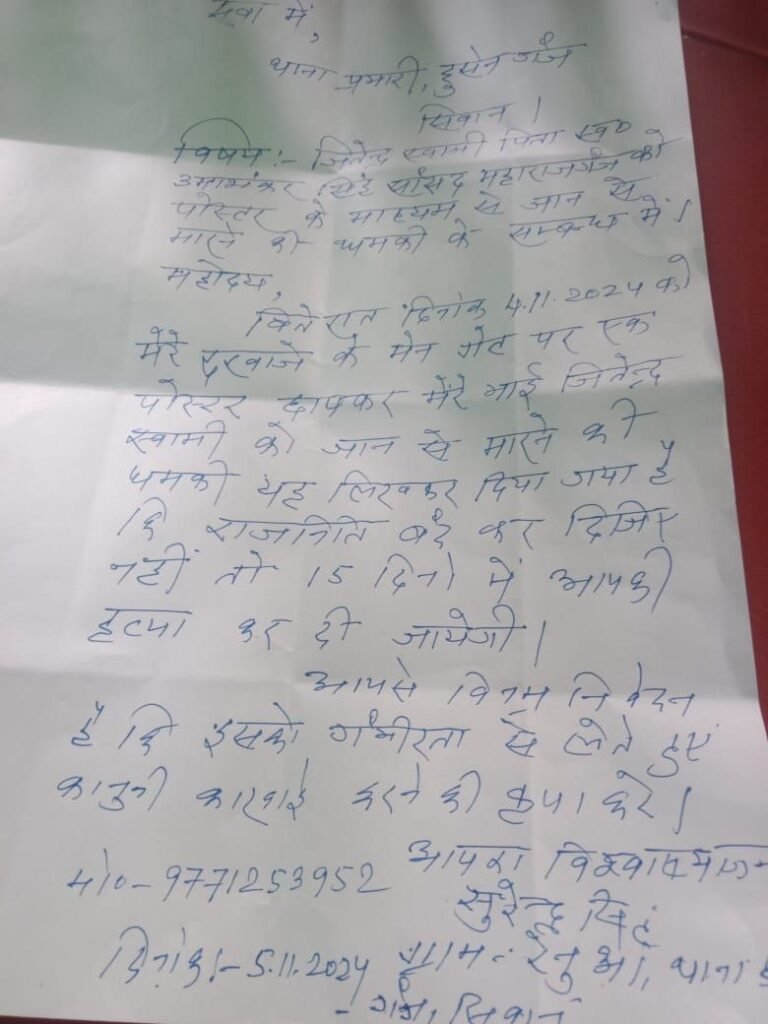 सेवा में,
थाना प्रभारी, हुसेन गंज
सिवान।
विषय:- जितेन्द्र स्वामी पिता स्व०
उमाशंकर सिंह सांसद महाराजगंज को
पोस्टर के माध्यम से जान से
मारने की धमकी के सम्बन्ध में।
महोदय,
बिते रात दिनांक 4.11.2024 को
मेरे दरवाजे के मेन गेट पर एक
पोस्टर छापकर मेरे भाई जितेन्द्र
स्वामी को जान से मारने की
धमकी यह लिखकर दिया गया है
कि राजनिति बंद कर दिजिए
नहीं तो 15 दिनों में आपकी
हत्या कर दी जायेगी।
आपसे विनम्र निवेदन
है कि इसको गंभीरता से लेते हुए
कानुनी कारवाई करने की कृपा करे।
आपका विश्वासभाजन
मो०- 9771253952
सुरेन्द्र सिंह
दिनांक:- 5.11.2024 ग्राम - रेनुआ, थाना
- गंज, सिवान